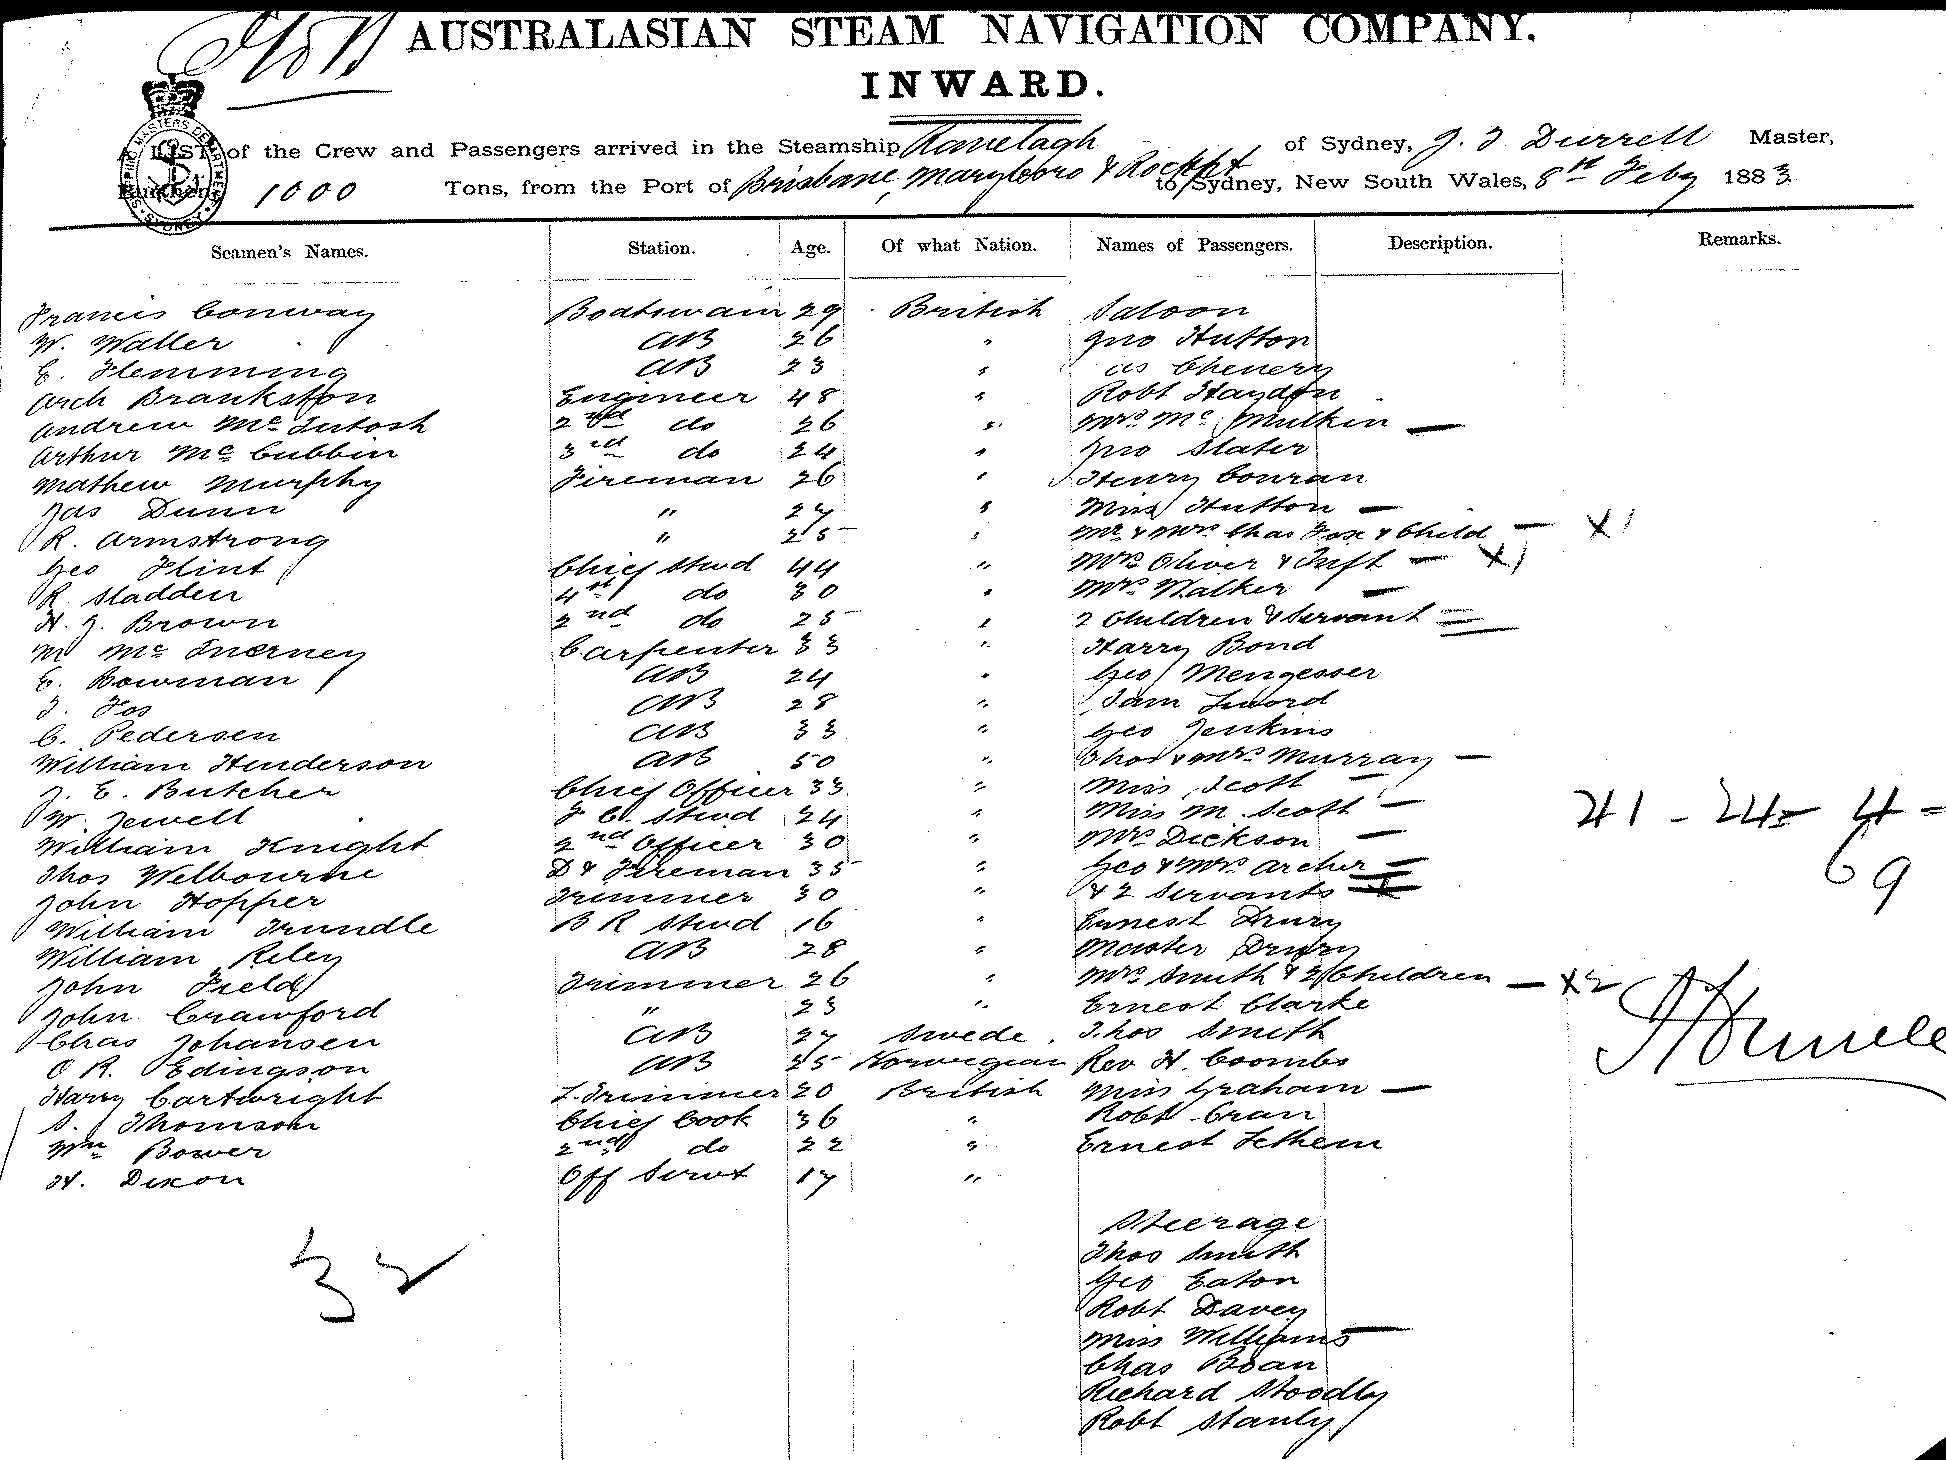 AUSTRALASIAN STEAM NAVIGATION COMPANY.
INWARD.
A LIST of the Crew and Passengers arrived in the Steamship Ranelagh of Sydney, J. T. Durrell Master,
Burthen 1000 Tons, from the Port of Brisbane, Marylboro & Rockpt to Sydney, New South Wales, 8th Feby 1883
Seamen's Names. Station. Age. Of what Nation. Names of Passengers. Description. Remarks.
Francis Conway Boatswain 29 British Saloon
W. Waller AB 26 " Jno Hutton
E. Flemming AB 23 " Chenery
Arch Brankston Engineer 48 " Robt Haydon
Andrew McIntosh 2nd do 26 " Mrs McMulkin —
Arthur McCubbin 3rd do 24 " Jno Slater
Mathew Murphy Fireman 26 " Henry Conran
Jas Dunn " 27 " Miss Hutton —
R. Armstrong " 25 " Mr & Mrs Chas Fox & Child — X1
Geo Flint Chief Stwd 44 " Mrs Oliver & Inft — X1
R. Sladden 4st do 30 " Mrs Walker —
H. J. Brown 2nd do 25 " 2 Children & Servant =
M McInerney Carpenter 33 " Harry Bond
E. Bowman AB 24 " Geo Mengesser
J. Fos AB 28 " Sam
C. Pedersen AB 33 " Geo Jenkins
William Henderson AB 50 " Thos & Mrs Murray —
J. E. Butcher Chief Officer 33 " Miss Scott —
W. Jewell F C. Stwd 24 " Miss M. Scott —
William Knight 2nd Officer 30 " Mrs Dickson —
Thos Welbourne D & Fireman 35 " Geo & Mrs Archer —
John Hopper Trimmer 30 " & 2 Servants
William Trundle B R Stwd 16 " Ernest Drury
William Riley AB 28 " Master Drury
John Field Trimmer 26 " Mrs Smith & 2 Children — X2
John Crawford " 23 " Ernest Clarke
Chas Johansen AB 27 Swede Thos Smith
O R. Edingson AB 25 Norwegian Rev H. Coombs
Harry Cartwright T. Trimmer 20 British Miss Graham —
S. Thomson Chief Cook 36 " Robt Cran
Wm Bower 2nd do 22 " Ernest Lethem
H. Dixon Off Servt 17 "
41 - 24 - 4 =
69
Steerage
Thos Smith
Geo Eaton
Robt Davey
Miss Williams —
Chas Boan
Richard Stoodly
Robt Stanly
32